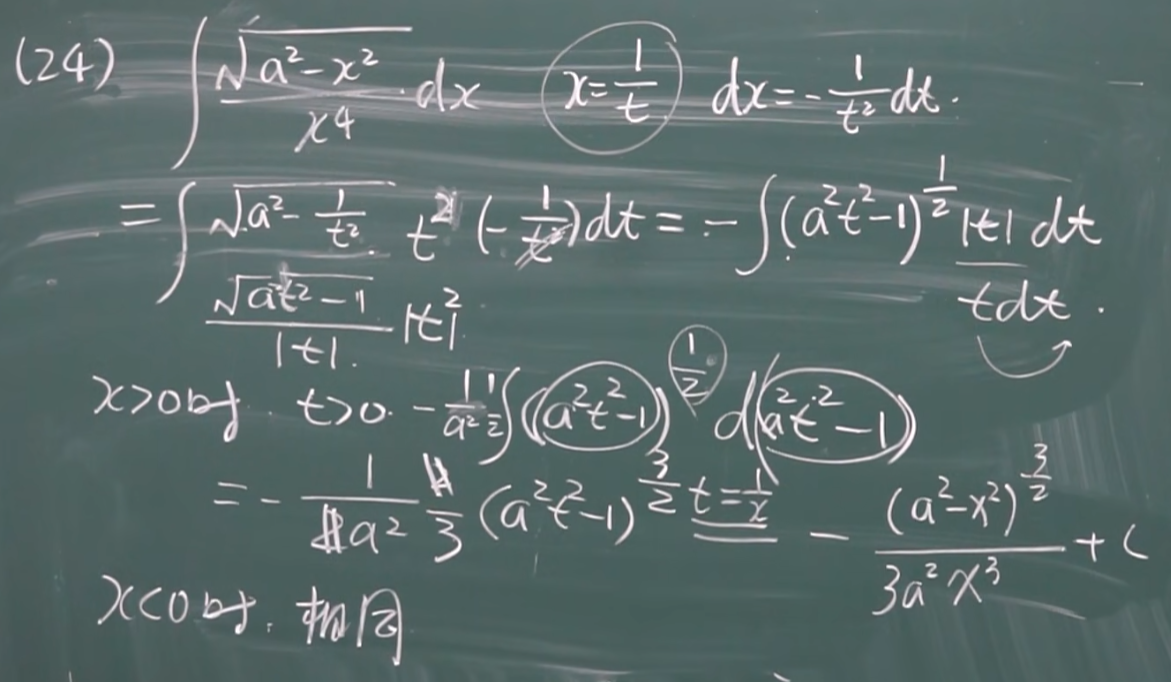 (24) ∫ √(a²-x²)/x⁴ dx x=1/t dx=-1/t² dt.
= ∫ √(a²-1/t²) t² (-1/t²) dt = -∫(a²t²-1)^(1/2) |t| dt
√(a²t²-1)/|t| |t|² t dt.
x>0时. t>0. -1/a² 1/2 ∫(a²t²-1)^(1/2) d(a²t²-1)
= -1/a² 1/3 (a²t²-1)^(3/2) t=1/x -(a²-x²)^(3/2)/(3a²x³) + C
x<0时. 相同